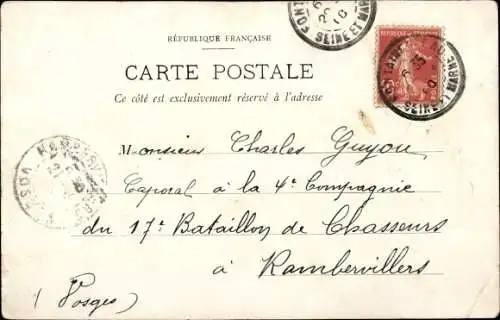 RÉPUBLIQUE FRANÇAISE
CARTE POSTALE
Ce côté est exclusivement réservé à l'adresse
Monsieur Charles Guyou
Caporal à la 4e Compagnie
du 17e Bataillon de Chasseurs
à Rambervillers
(Vosges)
SEINE ET MAR
SEINE